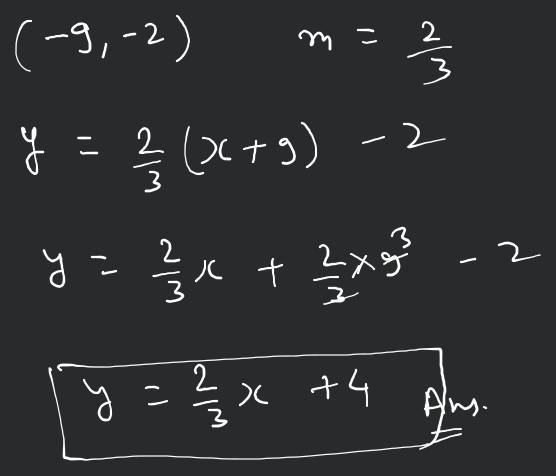 (-9, -2) m = 2/3
y = 2/3 (x + 9) - 2
y = 2/3 x + 2/3 × 9 3 - 2
y = 2/3 x + 4 Ans.